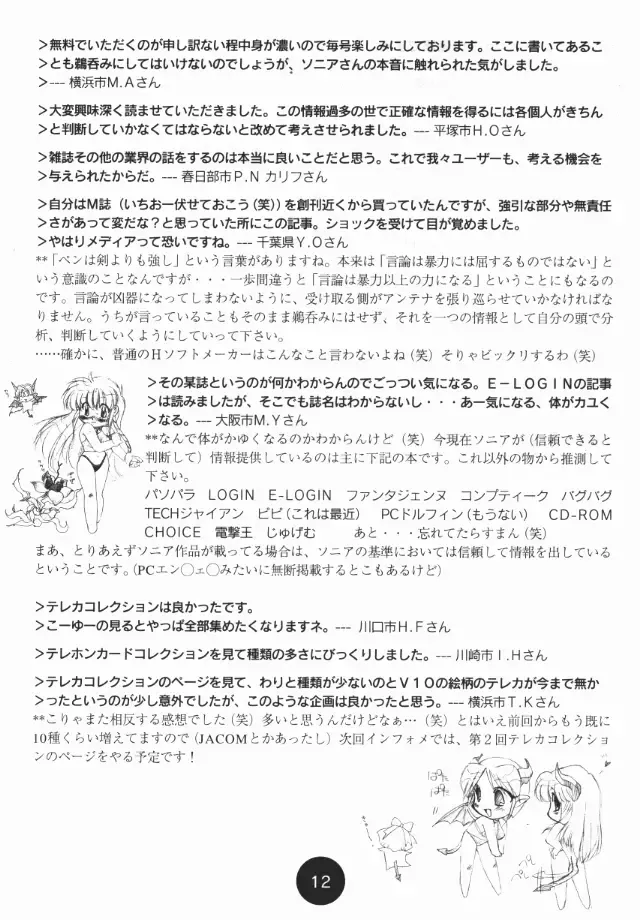 ＞無料でいただくのが申し訳ない程中身が濃いので毎号楽しみにしております。ここに書いてあるこ
＞とも鵜呑みにしてはいけないのでしょうが、ソニアさんの本音に触れられた気がしました。
＞--- 横浜市Ｍ.Ａさん
＞大変興味深く読ませていただきました。この情報過多の世で正確な情報を得るには各個人がきちん
＞と判断していかなくてはならないと改めて考えさせられました。--- 平塚市Ｈ.Ｏさん
＞雑誌その他の業界の話をするのは本当に良いことだと思う。これで我々ユーザーも、考える機会を
＞与えられたからだ。--- 春日部市Ｐ.Ｎ カリフさん
＞自分はＭ誌（いちお一伏せておこう（笑））を創刊近くから買っていたんですが、強引な部分や無責任
＞さがあって変だな？と思っていた所にこの記事。ショックを受けて目が覚めました。
＞やはりメディアって恐いですね。--- 千葉県Ｙ.Ｏさん
**「ペンは剣よりも強し」という言葉がありますね。本来は「言論は暴力には屈するものではない」と
いう意識のことなんですが・・・一歩間違うと「言論は暴力以上の力になる」ということにもなるの
です。言論が凶器になってしまわないように、受け取る側がアンテナを張り巡らせていかなければな
りません。うちが言っていることもそのまま鵜呑みにはせず、それを一つの情報として自分の頭で分
析、判断していくようにしていって下さい。
……確かに、普通のＨソフトメーカーはこんなこと言わないよね（笑）そりゃビックリするわ（笑）
＞その某誌というのが何かわからんのでごっつい気になる。Ｅ－ＬＯＧＩＮの記事
＞は読みましたが、そこでも誌名はわからないし・・・あー気になる、体がカユく
＞なる。--- 大阪市Ｍ.Ｙさん
**なんで体がかゆくなるのかわからんけど（笑）今現在ソニアが（信頼できると
判断して）情報提供しているのは主に下記の本です。これ以外の物から推測して
下さい。
パソパラ　LOGIN　E-LOGIN　ファンタジェンヌ　コンプティーク　バグバグ
TECHジャイアン　ピピ（これは最近）　PCドルフィン（もうない）　CD-ROM
CHOICE　電撃王　じゅげむ　　あと・・・忘れてたらすまん（笑）
まあ、とりあえずソニア作品が載ってる場合は、ソニアの基準においては信頼して情報を出している
ということです。（PCエン◯ェ◯みたいに無断掲載するとこもあるけど）
＞テレカコレクションは良かったです。
＞こーゆーの見るとやっぱ全部集めたくなりますネ。--- 川口市Ｈ.Ｆさん
＞テレホンカードコレクションを見て種類の多さにびっくりしました。--- 川崎市Ｉ.Ｈさん
＞テレカコレクションのページを見て、わりと種類が少ないのとＶ１０の絵柄のテレカが今まで無か
＞ったというのが少し意外でしたが、このような企画は良かったと思う。--- 横浜市Ｔ.Ｋさん
**こりゃまた相反する感想でした（笑）多いと思うんだけどなぁ…（笑）とはいえ前回からもう既に
10種くらい増えてますので（JACOMとかあったし）次回インフォメでは、第２回テレカコレクショ
ンのページをやる予定です！
ぱた
ぱた
12